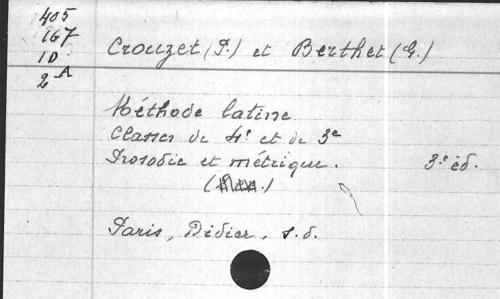 405
167
1D
2A
Crouzet (P.) et Berthet (G.)
Méthode latine
Classes de 4e et de 3e
Prosodie et métrique. 3e éd.
Paris, Didier, s.d.